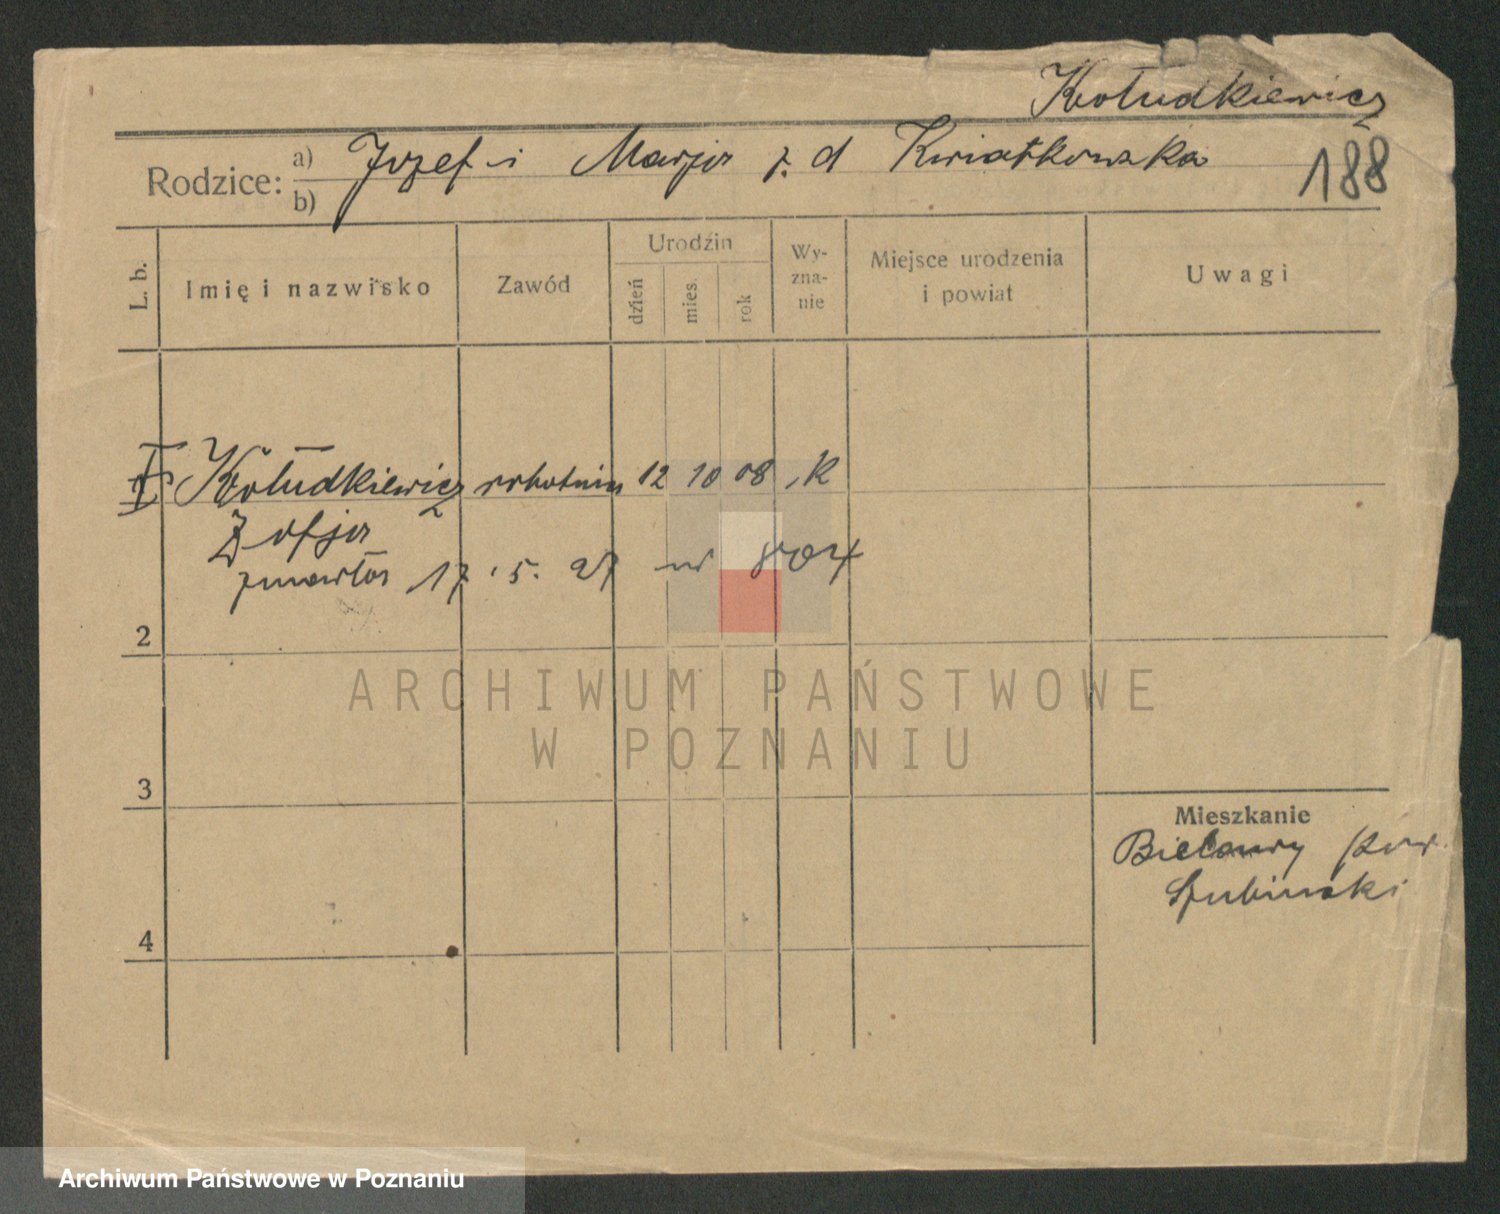 Kołudkiewicz
188
Rodzice: a) Józef i Marja z. d Kwiatkowska
b)
L. b. Imię i nazwisko Zawód Urodzin dzień mies. rok Wyznanie Miejsce urodzenia i powiat Uwagi
Kołudkiewicz robotnica 12 10 08 K
Zofja
zmarła 17. 5. 27 nr 804
2
ARCHIWUM PAŃSTWOWE
W POZNANIU
3
Mieszkanie
Bielawy pow.
Szubiński
4
Archiwum Państwowe w Poznaniu